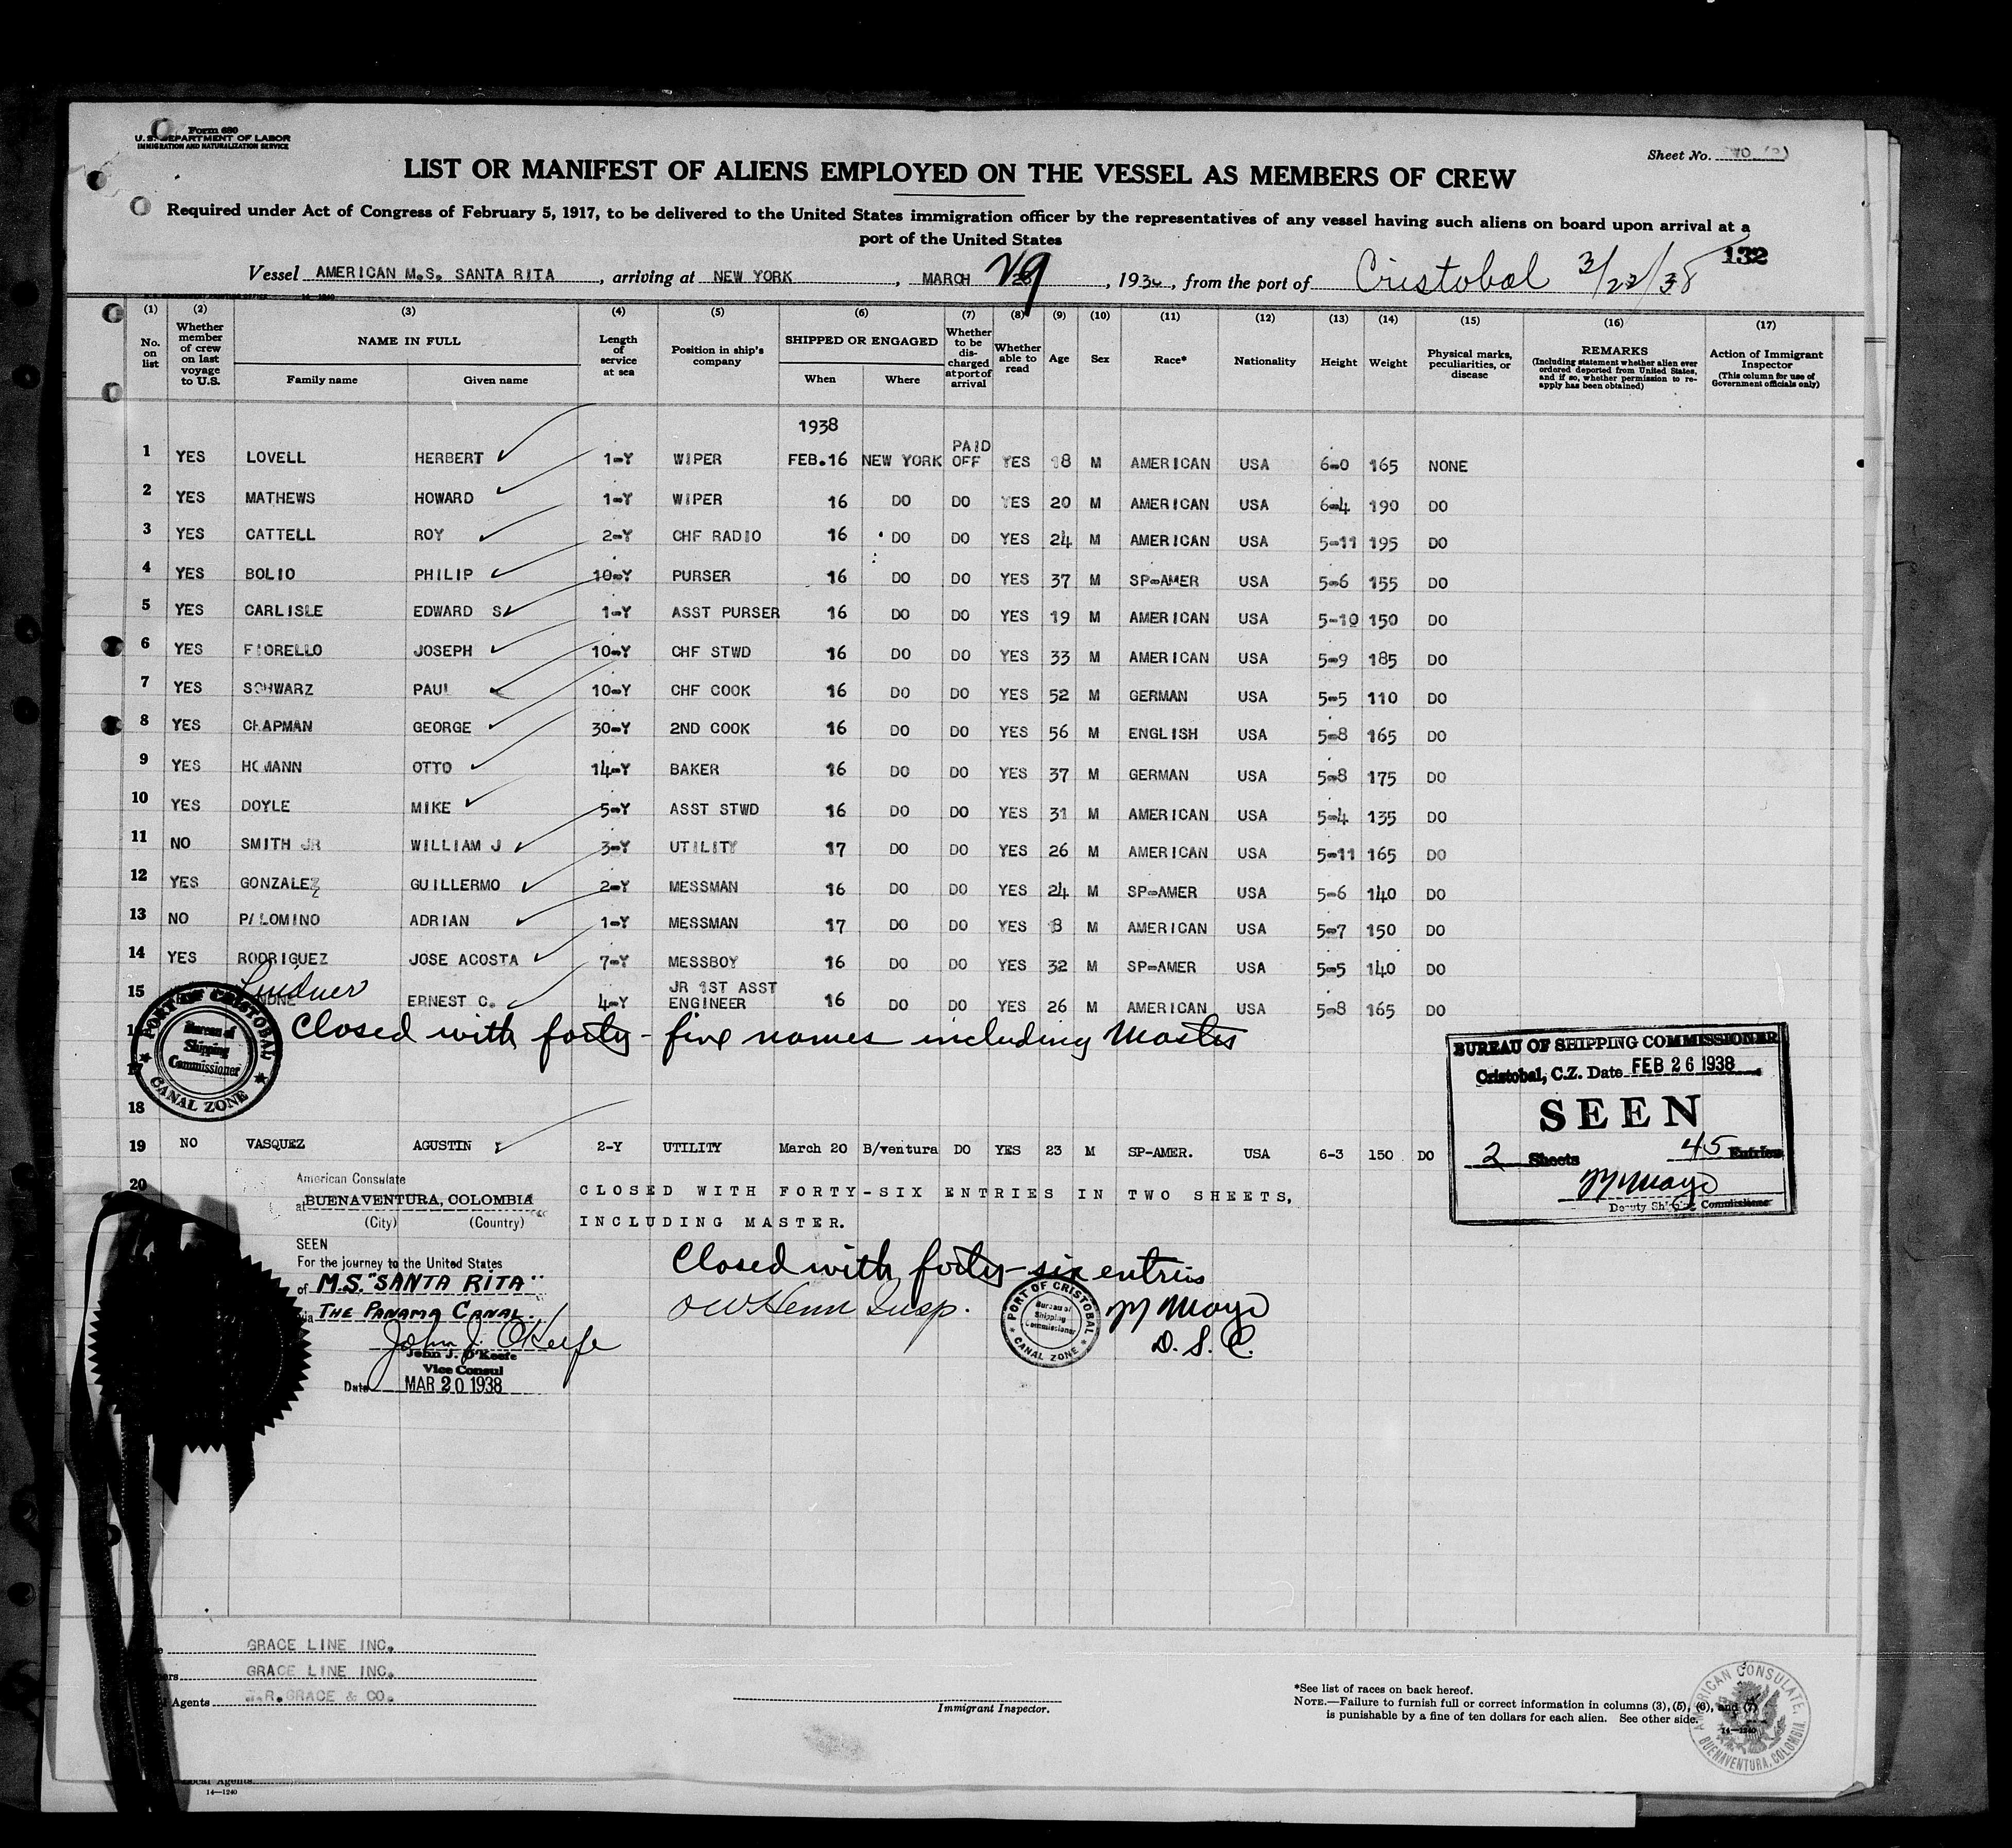 Form 680
U.S. DEPARTMENT OF LABOR
IMMIGRATION AND NATURALIZATION SERVICE
Sheet No.
LIST OR MANIFEST OF ALIENS EMPLOYED ON THE VESSEL AS MEMBERS OF CREW
Required under Act of Congress of February 5, 1917, to be delivered to the United States immigration officer by the representatives of any vessel having such aliens on board upon arrival at a
port of the United States
132
Vessel AMERICAN M.S. SANTA RITA, arriving at NEW YORK, MARCH 29, 193, from the port of Cristobal 3/22/38
(1) (2) (3) (4) (5) (6) (7) (8) (9) (10) (11) (12) (13) (14) (15) (16) (17)
No. on list
Whether member of crew on last voyage to U.S.
NAME IN FULL
Family name
Given name
Length of service at sea
Position in ship's company
SHIPPED OR ENGAGED
When
Where
Whether to be discharged at port of arrival
Whether able to read
Age
Sex
Race*
Nationality
Height
Weight
Physical marks, peculiarities, or disease
REMARKS
(Including statement whether alien ever ordered deported from United States, and if so, whether permission to reapply has been obtained)
Action of Immigrant Inspector
(This column for use of Government officials only)
1938
1 YES LOVELL HERBERT 1-Y WIPER FEB.16 NEW YORK PAID OFF YES 18 M AMERICAN USA 6-0 165 NONE
2 YES MATHEWS HOWARD 1-Y WIPER 16 DO DO YES 20 M AMERICAN USA 6-4 190 DO
3 YES CATTELL ROY 2-Y CHF RADIO 16 DO DO YES 24 M AMERICAN USA 5-11 195 DO
4 YES BOLIO PHILIP 10-Y PURSER 16 DO DO YES 37 M SP-AMER USA 5-6 155 DO
5 YES CARLISLE EDWARD S 1-Y ASST PURSER 16 DO DO YES 19 M AMERICAN USA 5-10 150 DO
6 YES FIORELLO JOSEPH 10-Y CHF STWD 16 DO DO YES 33 M AMERICAN USA 5-9 185 DO
7 YES SCHWARZ PAUL 10-Y CHF COOK 16 DO DO YES 52 M GERMAN USA 5-5 110 DO
8 YES CHAPMAN GEORGE 30-Y 2ND COOK 16 DO DO YES 56 M ENGLISH USA 5-8 165 DO
9 YES HOMANN OTTO 14-Y BAKER 16 DO DO YES 37 M GERMAN USA 5-8 175 DO
10 YES DOYLE MIKE 5-Y ASST STWD 16 DO DO YES 31 M AMERICAN USA 5-4 135 DO
11 NO SMITH JR WILLIAM J 3-Y UTILITY 17 DO DO YES 26 M AMERICAN USA 5-11 165 DO
12 YES GONZALEZ GUILLERMO 2-Y MESSMAN 16 DO DO YES 24 M SP-AMER USA 5-6 140 DO
13 NO PALOMINO ADRIAN 1-Y MESSMAN 17 DO DO YES 8 M AMERICAN USA 5-7 150 DO
14 YES RODRIGUEZ JOSE ACOSTA 7-Y MESSBOY 16 DO DO YES 32 M SP-AMER USA 5-5 140 DO
15 Lindner ERNEST C. 4-Y JR 1ST ASST ENGINEER 16 DO DO YES 26 M AMERICAN USA 5-8 165 DO
PORT OF CRISTOBAL
Bureau of Shipping Commissioner
CANAL ZONE
Closed with forty-five names including Master
17
18
BUREAU OF SHIPPING COMMISSIONER
Cristobal, C.Z. Date FEB 26 1938
SEEN
2 Sheets 45 Entries
M Mayo
Deputy Shipping Commissioner
19 NO VASQUEZ AGUSTIN 2-Y UTILITY March 20 B/ventura DO YES 23 M SP-AMER. USA 6-3 150 DO
20
CLOSED WITH FORTY-SIX ENTRIES IN TWO SHEETS,
INCLUDING MASTER.
American Consulate
at BUENAVENTURA, COLOMBIA
(City) (Country)
SEEN
For the journey to the United States
of M.S. "SANTA RITA"
via THE PANAMA CANAL.
John J. O'Keefe
John J. O'Keefe
Vice Consul
Date MAR 20 1938
Closed with forty-six entries
Insp.
PORT OF CRISTOBAL
Bureau of Shipping Commissioner
CANAL ZONE
M Mayo
D. S. C.
GRACE LINE INC.
GRACE LINE INC.
Agents .R. GRACE & CO.
Immigrant Inspector.
*See list of races on back hereof.
NOTE.—Failure to furnish full or correct information in columns (3), (5), (6), and (7)
is punishable by a fine of ten dollars for each alien. See other side.
14—1240
AMERICAN CONSULATE,
BUENAVENTURA, COLOMBIA
Local Agents
14—1240